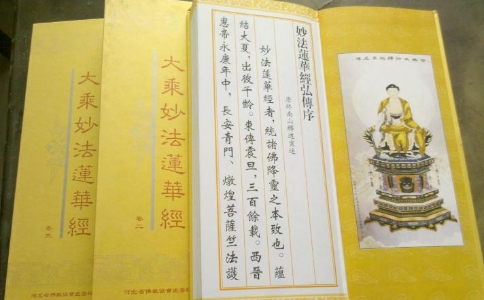 大乘妙法蓮華經
大乘妙法蓮華經
卷二
妙法蓮華經弘傳序
唐終南山釋道宣述
妙法蓮華經者，統諸佛降靈之本致也。蘊
結大夏，出彼千齡。東傳震旦，三百餘載。西晉
惠帝永康年中，長安青門、燉煌菩薩竺法護
河北省佛教協會